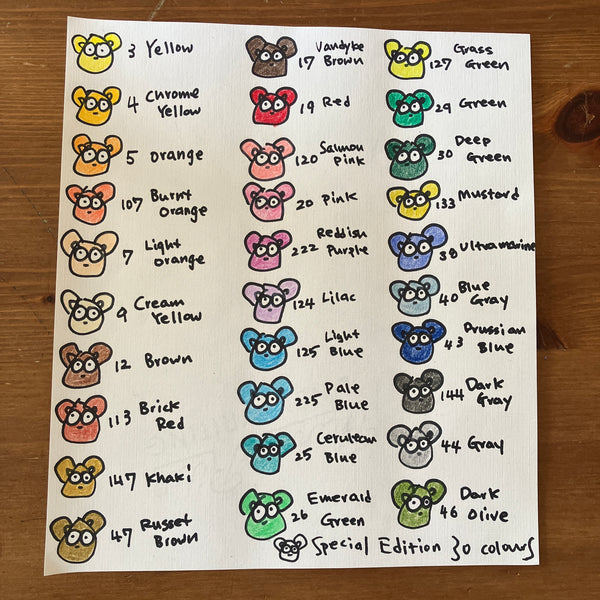 3 Yellow
4 Chrome
Yellow
5 orange
107 Burnt
orange
7 Light
orange
9 Cream
Yellow
12 Brown
113 Brick
Red
147 Khaki
47 Russet
Brown
17 Vandyke
Brown
19 Red
120 Salmon
Pink
20 Pink
222 Reddish
Purple
124 Lilac
125 Light
Blue
225 Pale
Blue
25 Cerulean
Blue
26 Emerald
Green
127 Grass
Green
29 Green
30 Deep
Green
133 Mustard
38 Ultramarine
40 Blue
Gray
43 Prussian
Blue
144 Dark
Gray
44 Gray
46 Dark
Olive
Special Edition 30 colours